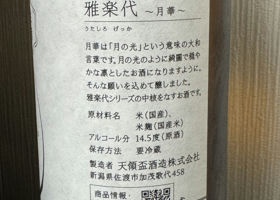 雅楽代 ～月華～
うたしろ げっか
月華は「月の光」という意味の大和
言葉です。月の光のように綺麗で穏や
かな凛としたお酒になりますように。
そんな願いを込めて醸しました。
雅楽代シリーズの中核をなすお酒です。
原材料名 米（国産）、
米麹（国産米）
アルコール分 14.5度（原酒）
保存方法 要冷蔵
製造者 天領盃酒造株式会社
新潟県佐渡市加茂歌代458
商品情報・